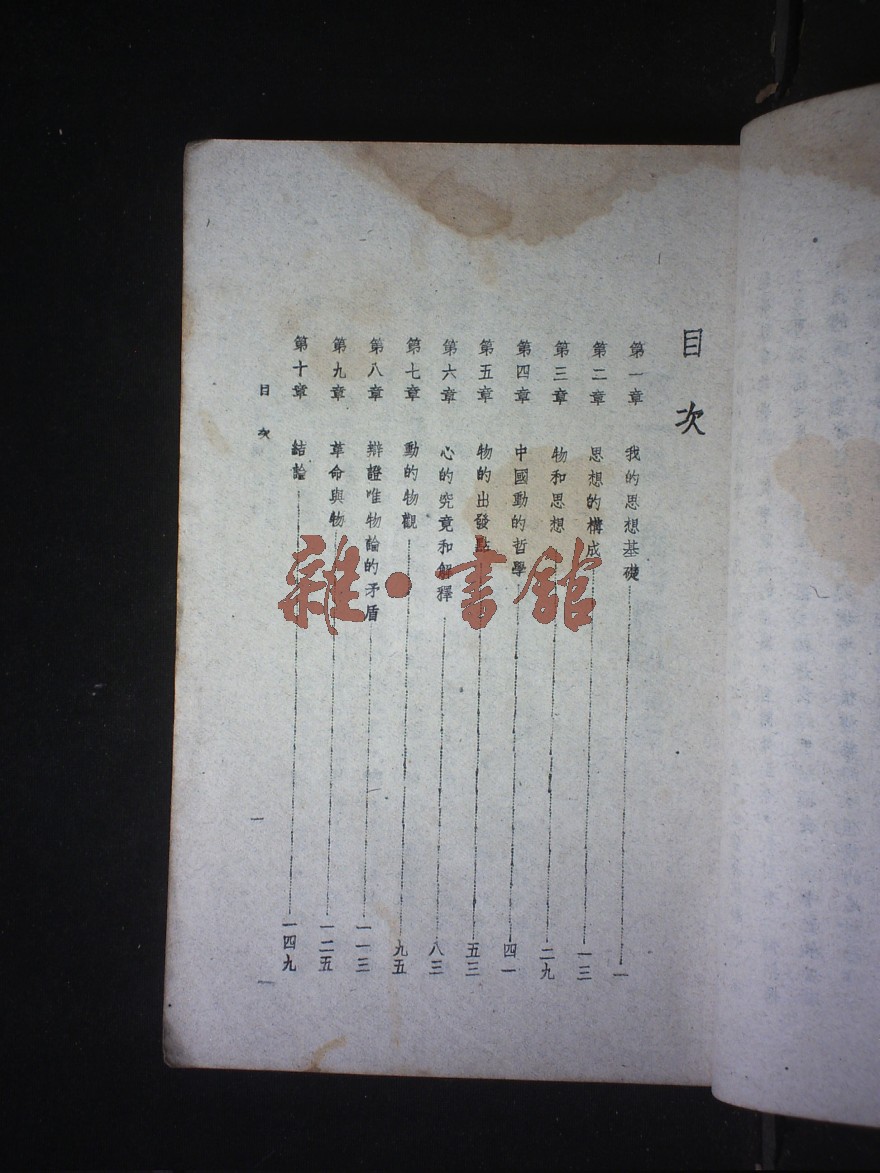 目次
第一章 我的思想基礎 一
第二章 思想的構成 一三
第三章 物和思想 二九
第四章 中國動的哲學 四一
第五章 物的出發點 五三
第六章 心的究竟和解釋 八三
第七章 動的物觀 九五
第八章 辯證唯物論的矛盾 一一三
第九章 革命與物 一二五
第十章 結論 一四九
目次 一
雜·書館